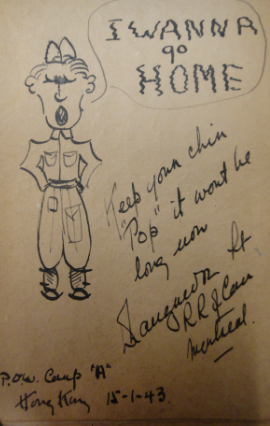 I WANNA
go
HOME
Keep your chin
"Pop" it wont be
long now
Lt.
R.R. of Can
Montreal.
P.O.W. Camp "A"
Hong Kong 15-1-43